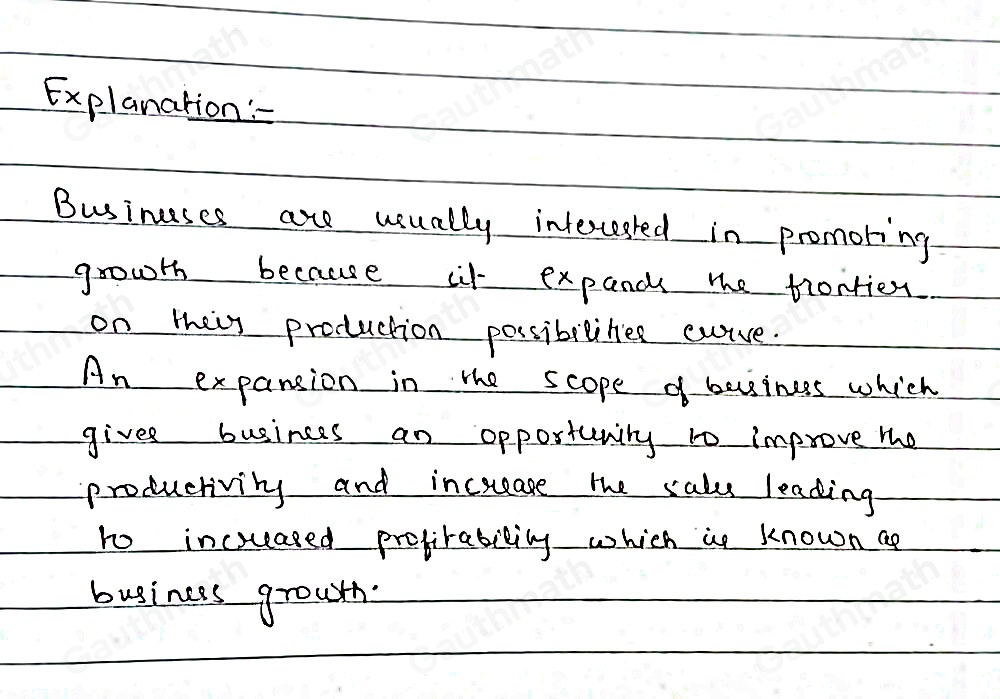 Explanation:-
Businesses are usually interested in promoting
growth because it expands the frontier
on their production possibilities curve.
An expansion in the scope of business which
gives business an opportunity to improve the
productivity and increase the sales leading
to increased profitability which is known as
business growth.